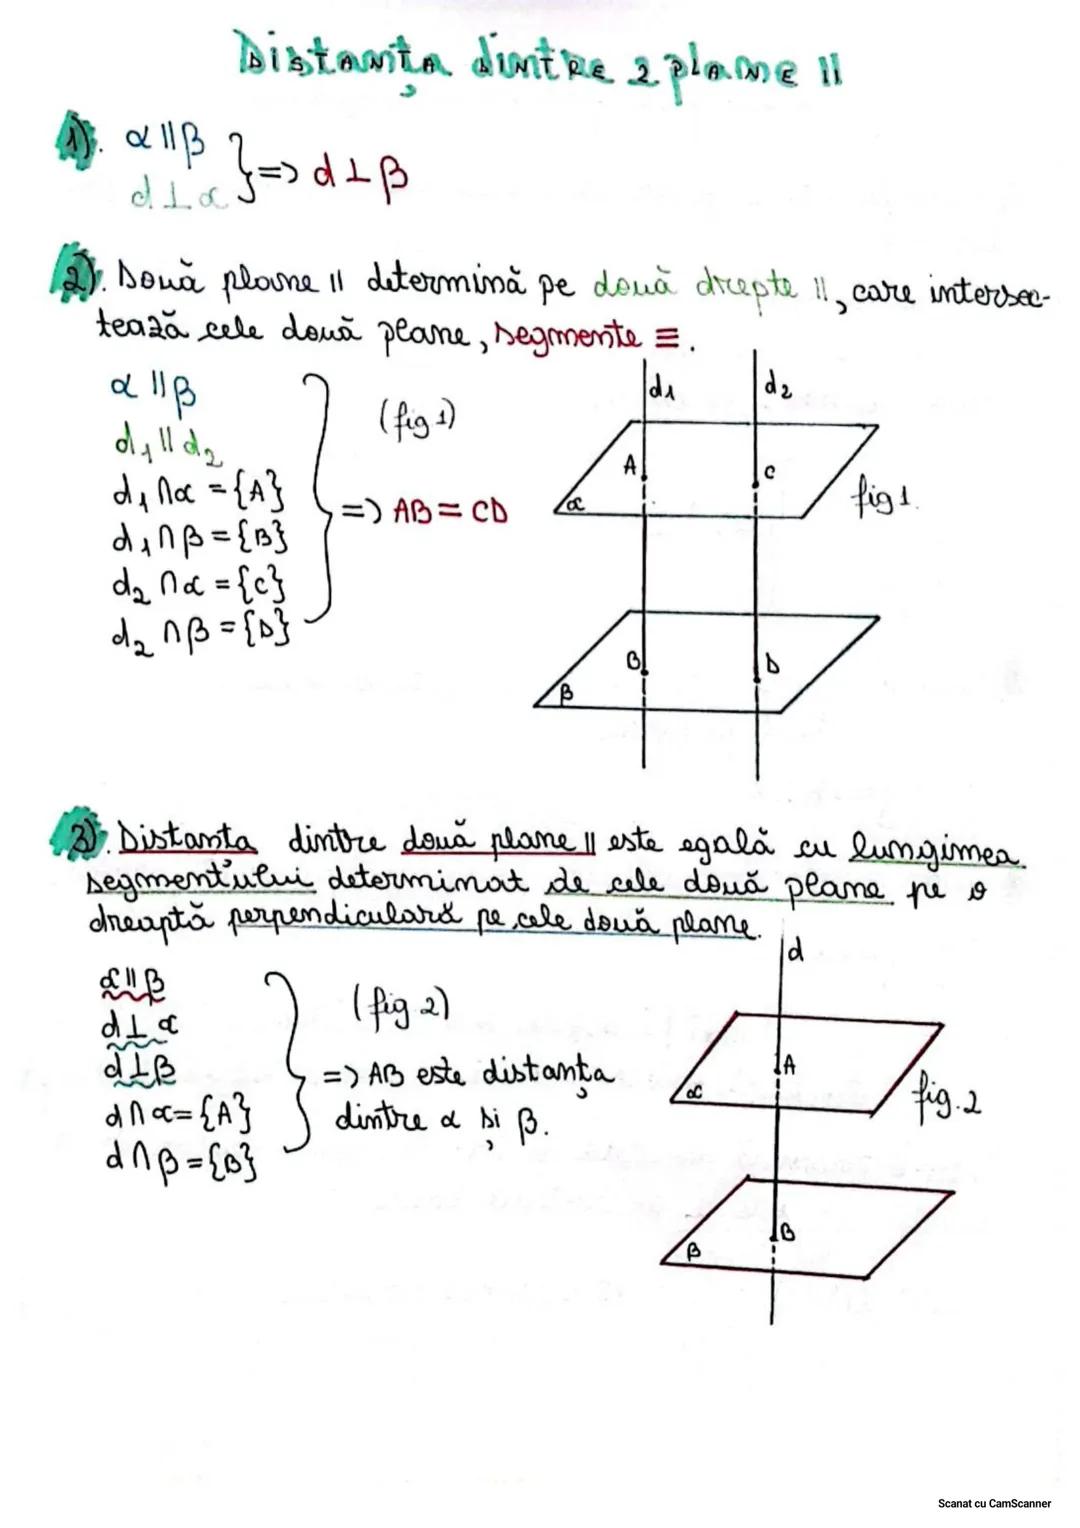 Distanța dintre 2 plane ||
1). α || β
d ⊥ α } => d ⊥ β
2). Două plane || determină pe două drepte ||, care intersec-
tează cele două plane, segmente ≡.
α || β
d₁ || d₂
d₁ ∩ α = {A}
d₁ ∩ β = {B}
d₂ ∩ α = {C}
d₂ ∩ β = {D}
(fig 1)
=> AB = CD
d₁ d₂
A C
α
fig 1.
B D
β
3). Distanța dintre două plane || este egală cu lungimea
segmentului determinat de cele două plane pe o
dreaptă perpendiculară pe cele două plane.
α || β
d ⊥ α
d ⊥ β
d ∩ α = {A}
d ∩ β = {B}
(fig. 2)
=> AB este distanța
dintre α și β.
d
A
α
fig. 2
B
β
Scanat cu CamScanner